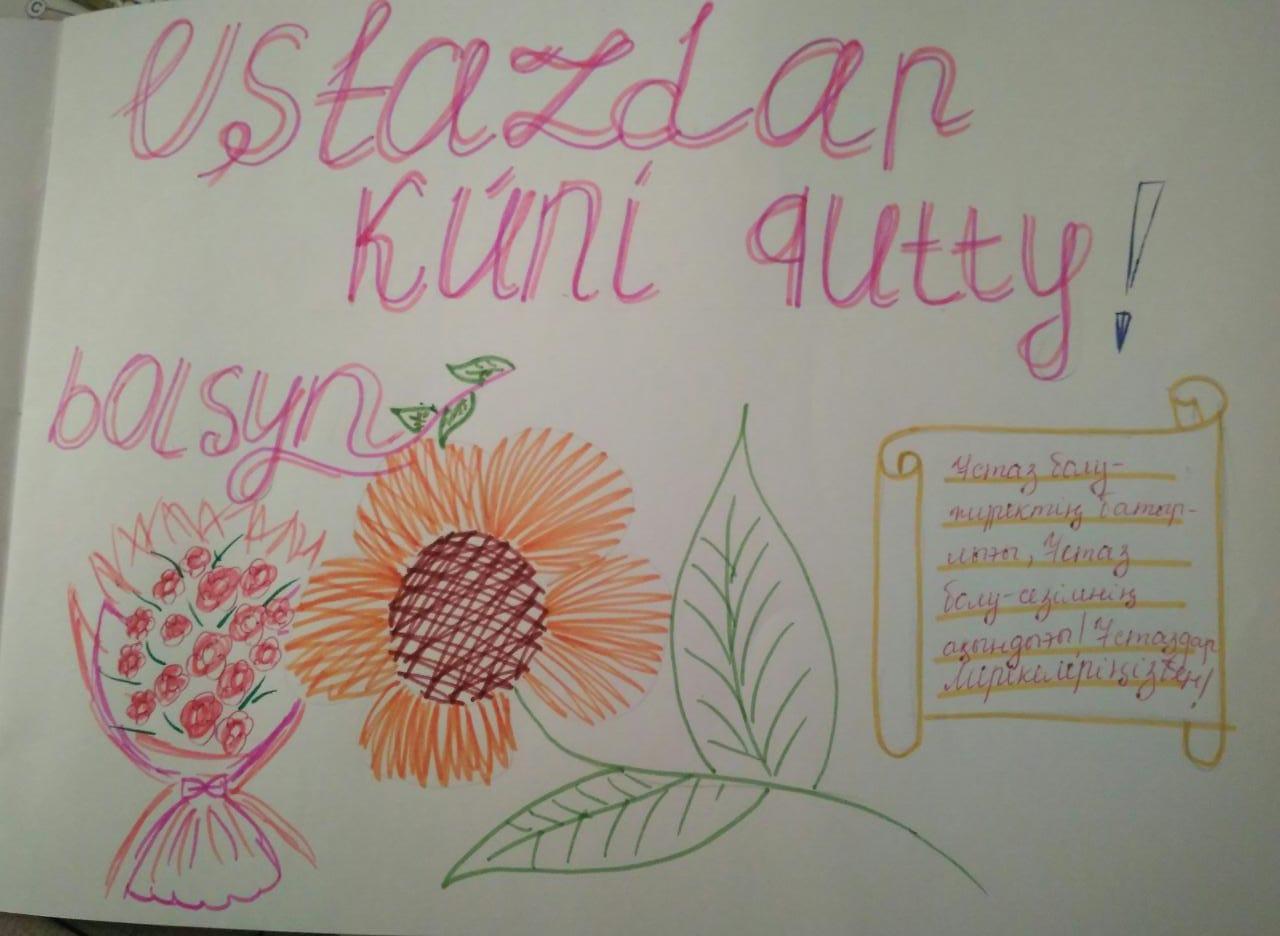 Ustazdar
kúni qutty!
bolsyn
Ұстаз болу-
жүректің батыр-
лығы, Ұстаз
болу-сезімнің
ақындығы! Ұстаздар
Мерекелеріңізбен!